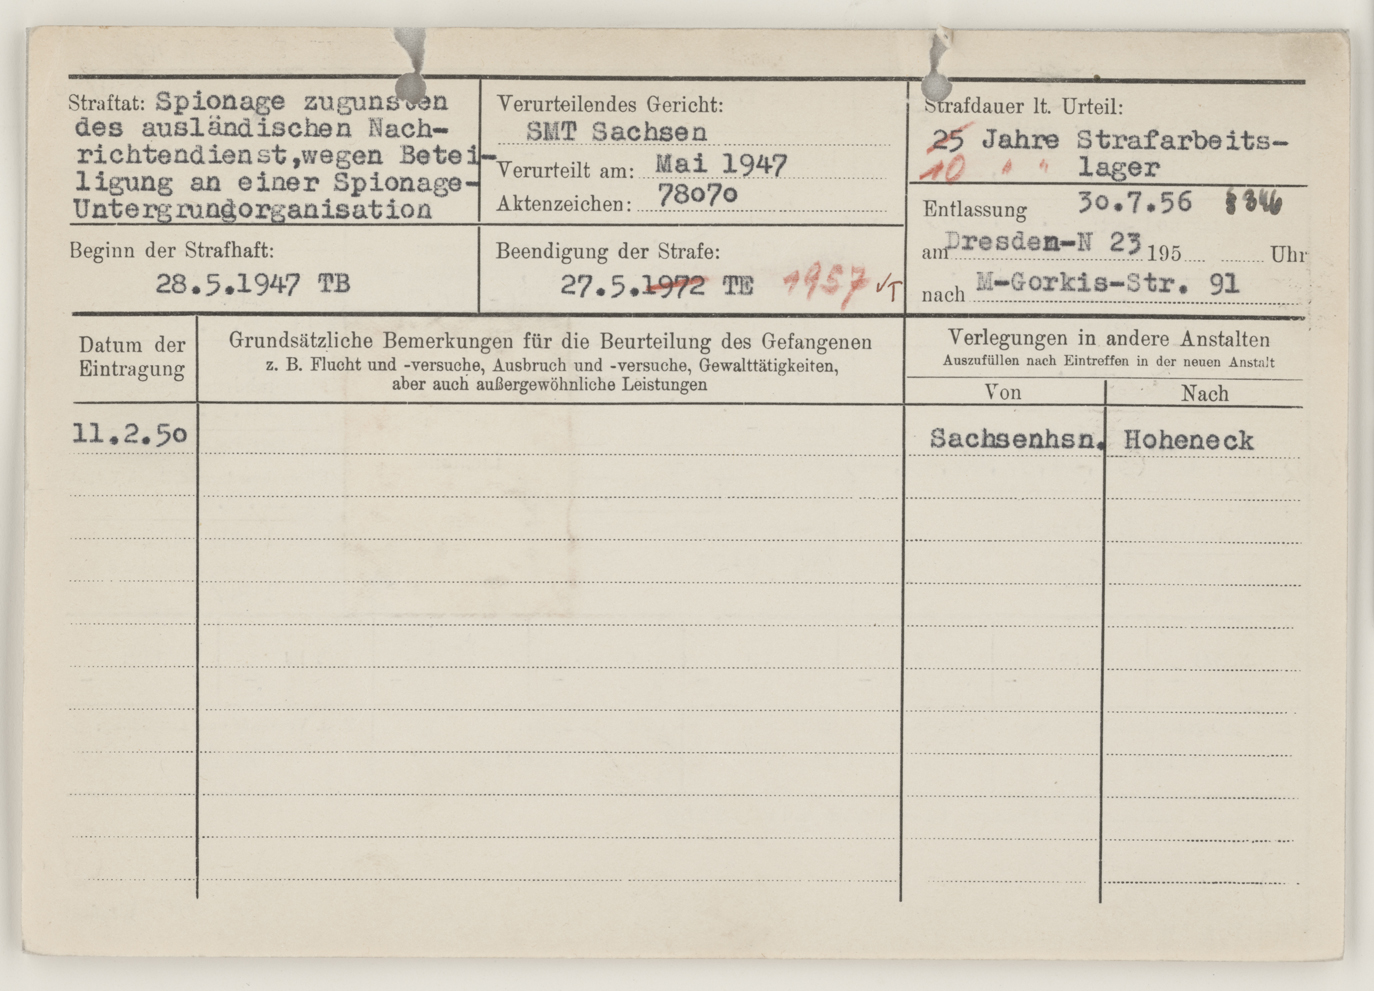 Straftat: Spionage zugunsten
des ausländischen Nach-
richtendienst,wegen Betei-
ligung an einer Spionage-
Untergrundorganisation
Verurteilendes Gericht:
SMT Sachsen
Verurteilt am: Mai 1947
Aktenzeichen: 78070
Strafdauer lt. Urteil:
25 Jahre Strafarbeits-
10 " " lager
Entlassung 30.7.56 § 346
am Dresden-N 23 195 Uhr
nach M-Gorkis-Str. 91
Beginn der Strafhaft:
28.5.1947 TB
Beendigung der Strafe:
27.5.1972 TE 1957
Datum der
Eintragung
Grundsätzliche Bemerkungen für die Beurteilung des Gefangenen
z. B. Flucht und -versuche, Ausbruch und -versuche, Gewalttätigkeiten,
aber auch außergewöhnliche Leistungen
Verlegungen in andere Anstalten
Auszufüllen nach Eintreffen in der neuen Anstalt
Von Nach
11.2.50 Sachsenhsn. Hoheneck